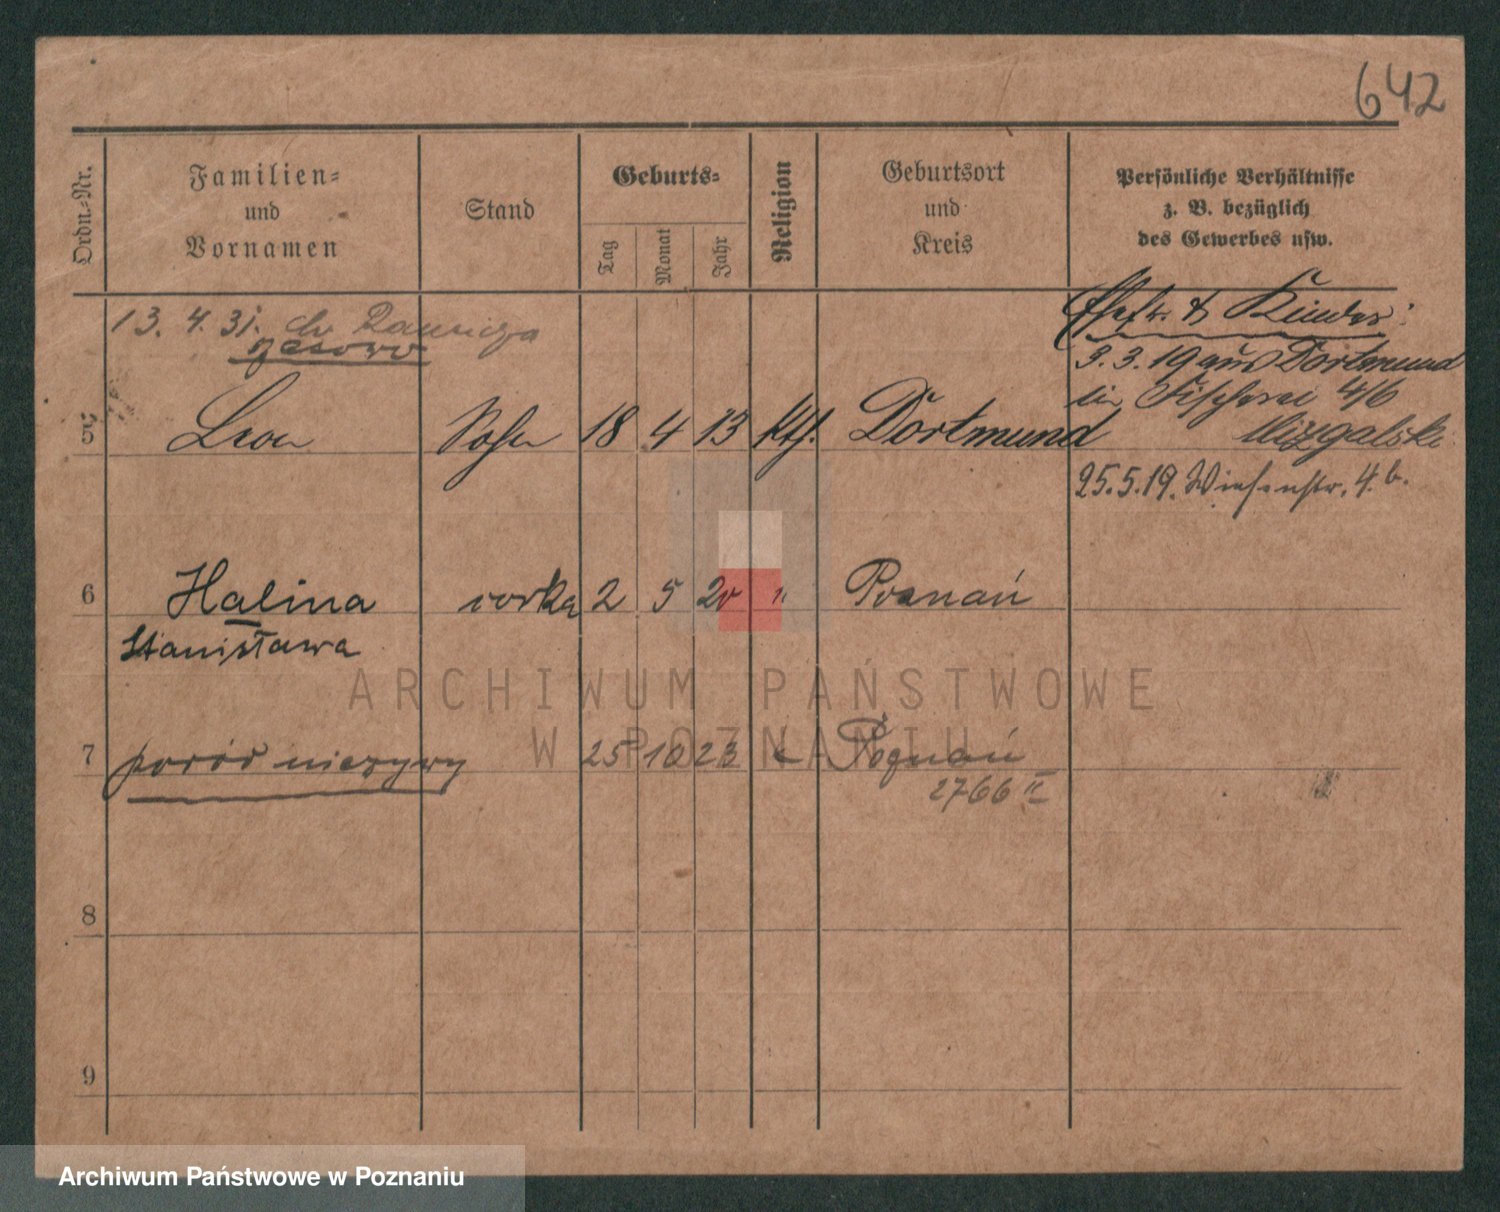 642
Ordn.-Nr.
Familien-
und
Vornamen
Stand
Geburts-
Tag
Monat
Jahr
Religion
Geburtsort
und
Kreis
Persönliche Verhältnisse
z. B. bezüglich
des Gewerbes usw.
13. 4. 31. do
czasowo
Ehefr. & Kinder:
3.3.19 aus Dortmund
in Fischerei 4/6
5 Leon Sohn 18 4 13 kth. Dortmund
25.5.19. Wiesenstr. 4.b.
6 Halina córka 2 5 20 " Poznań
Stanisława
7 poród nieżywy 25 10 23 " Poznań
2766 II
8
9
ARCHIWUM PAŃSTWOWE
W POZNANIU
Archiwum Państwowe w Poznaniu